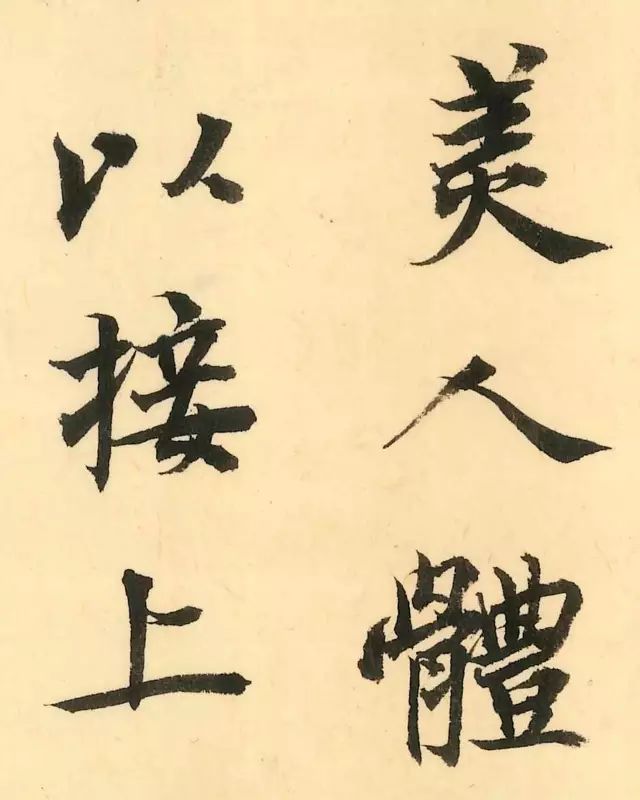 美人體
以接上